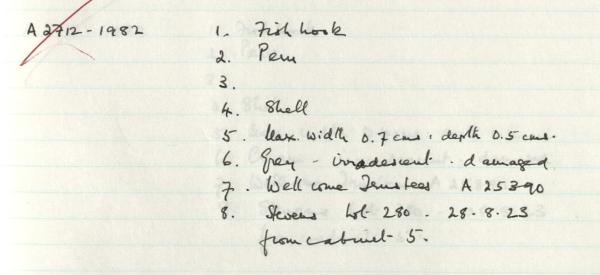 A 2712-1982 1. Fish hook
2. Peru
3.
4. Shell
5. Max. width 0.7 cms. depth 0.5 cms.
6. Grey - irradescent. damaged
7. Wellcome Trustees A 25390
8. Stevens Lot 280. 28.8.23
from cabinet 5.